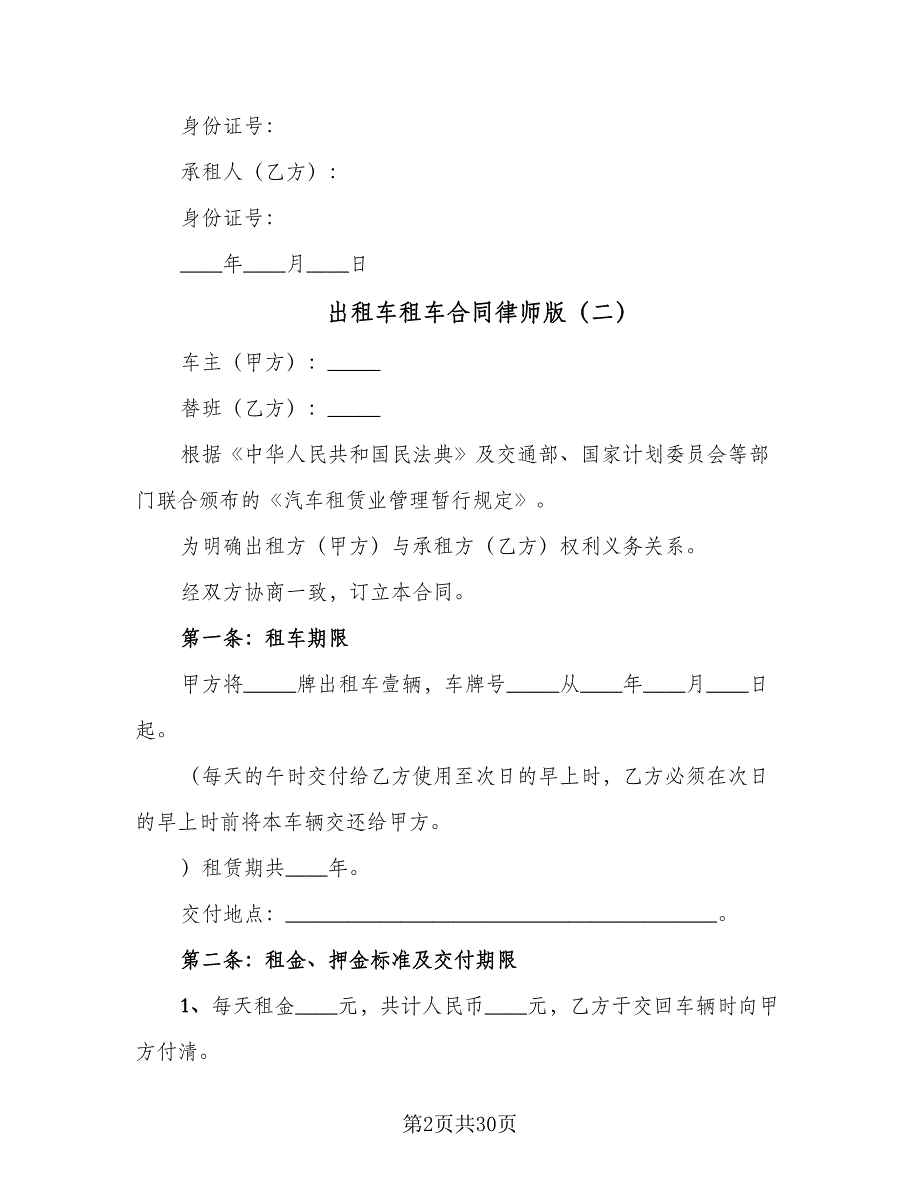 身份证号：
承租人（乙方）：
身份证号：
____年____月____日
出租车租车合同律师版（二）
车主（甲方）：_____
替班（乙方）：_____
根据《中华人民共和国民法典》及交通部、国家计划委员会等部
门联合颁布的《汽车租赁业管理暂行规定》。
为明确出租方（甲方）与承租方（乙方）权利义务关系。
经双方协商一致，订立本合同。
第一条：租车期限
甲方将_____牌出租车壹辆，车牌号_____从____年____月____日
起。
（每天的午时交付给乙方使用至次日的早上时，乙方必须在次日
的早上时前将本车辆交还给甲方。
）租赁期共____年。
交付地点：_________________________________________。
第二条：租金、押金标准及交付期限
1、每天租金____元，共计人民币____元，乙方于交回车辆时向甲
方付清。
第2页共30页